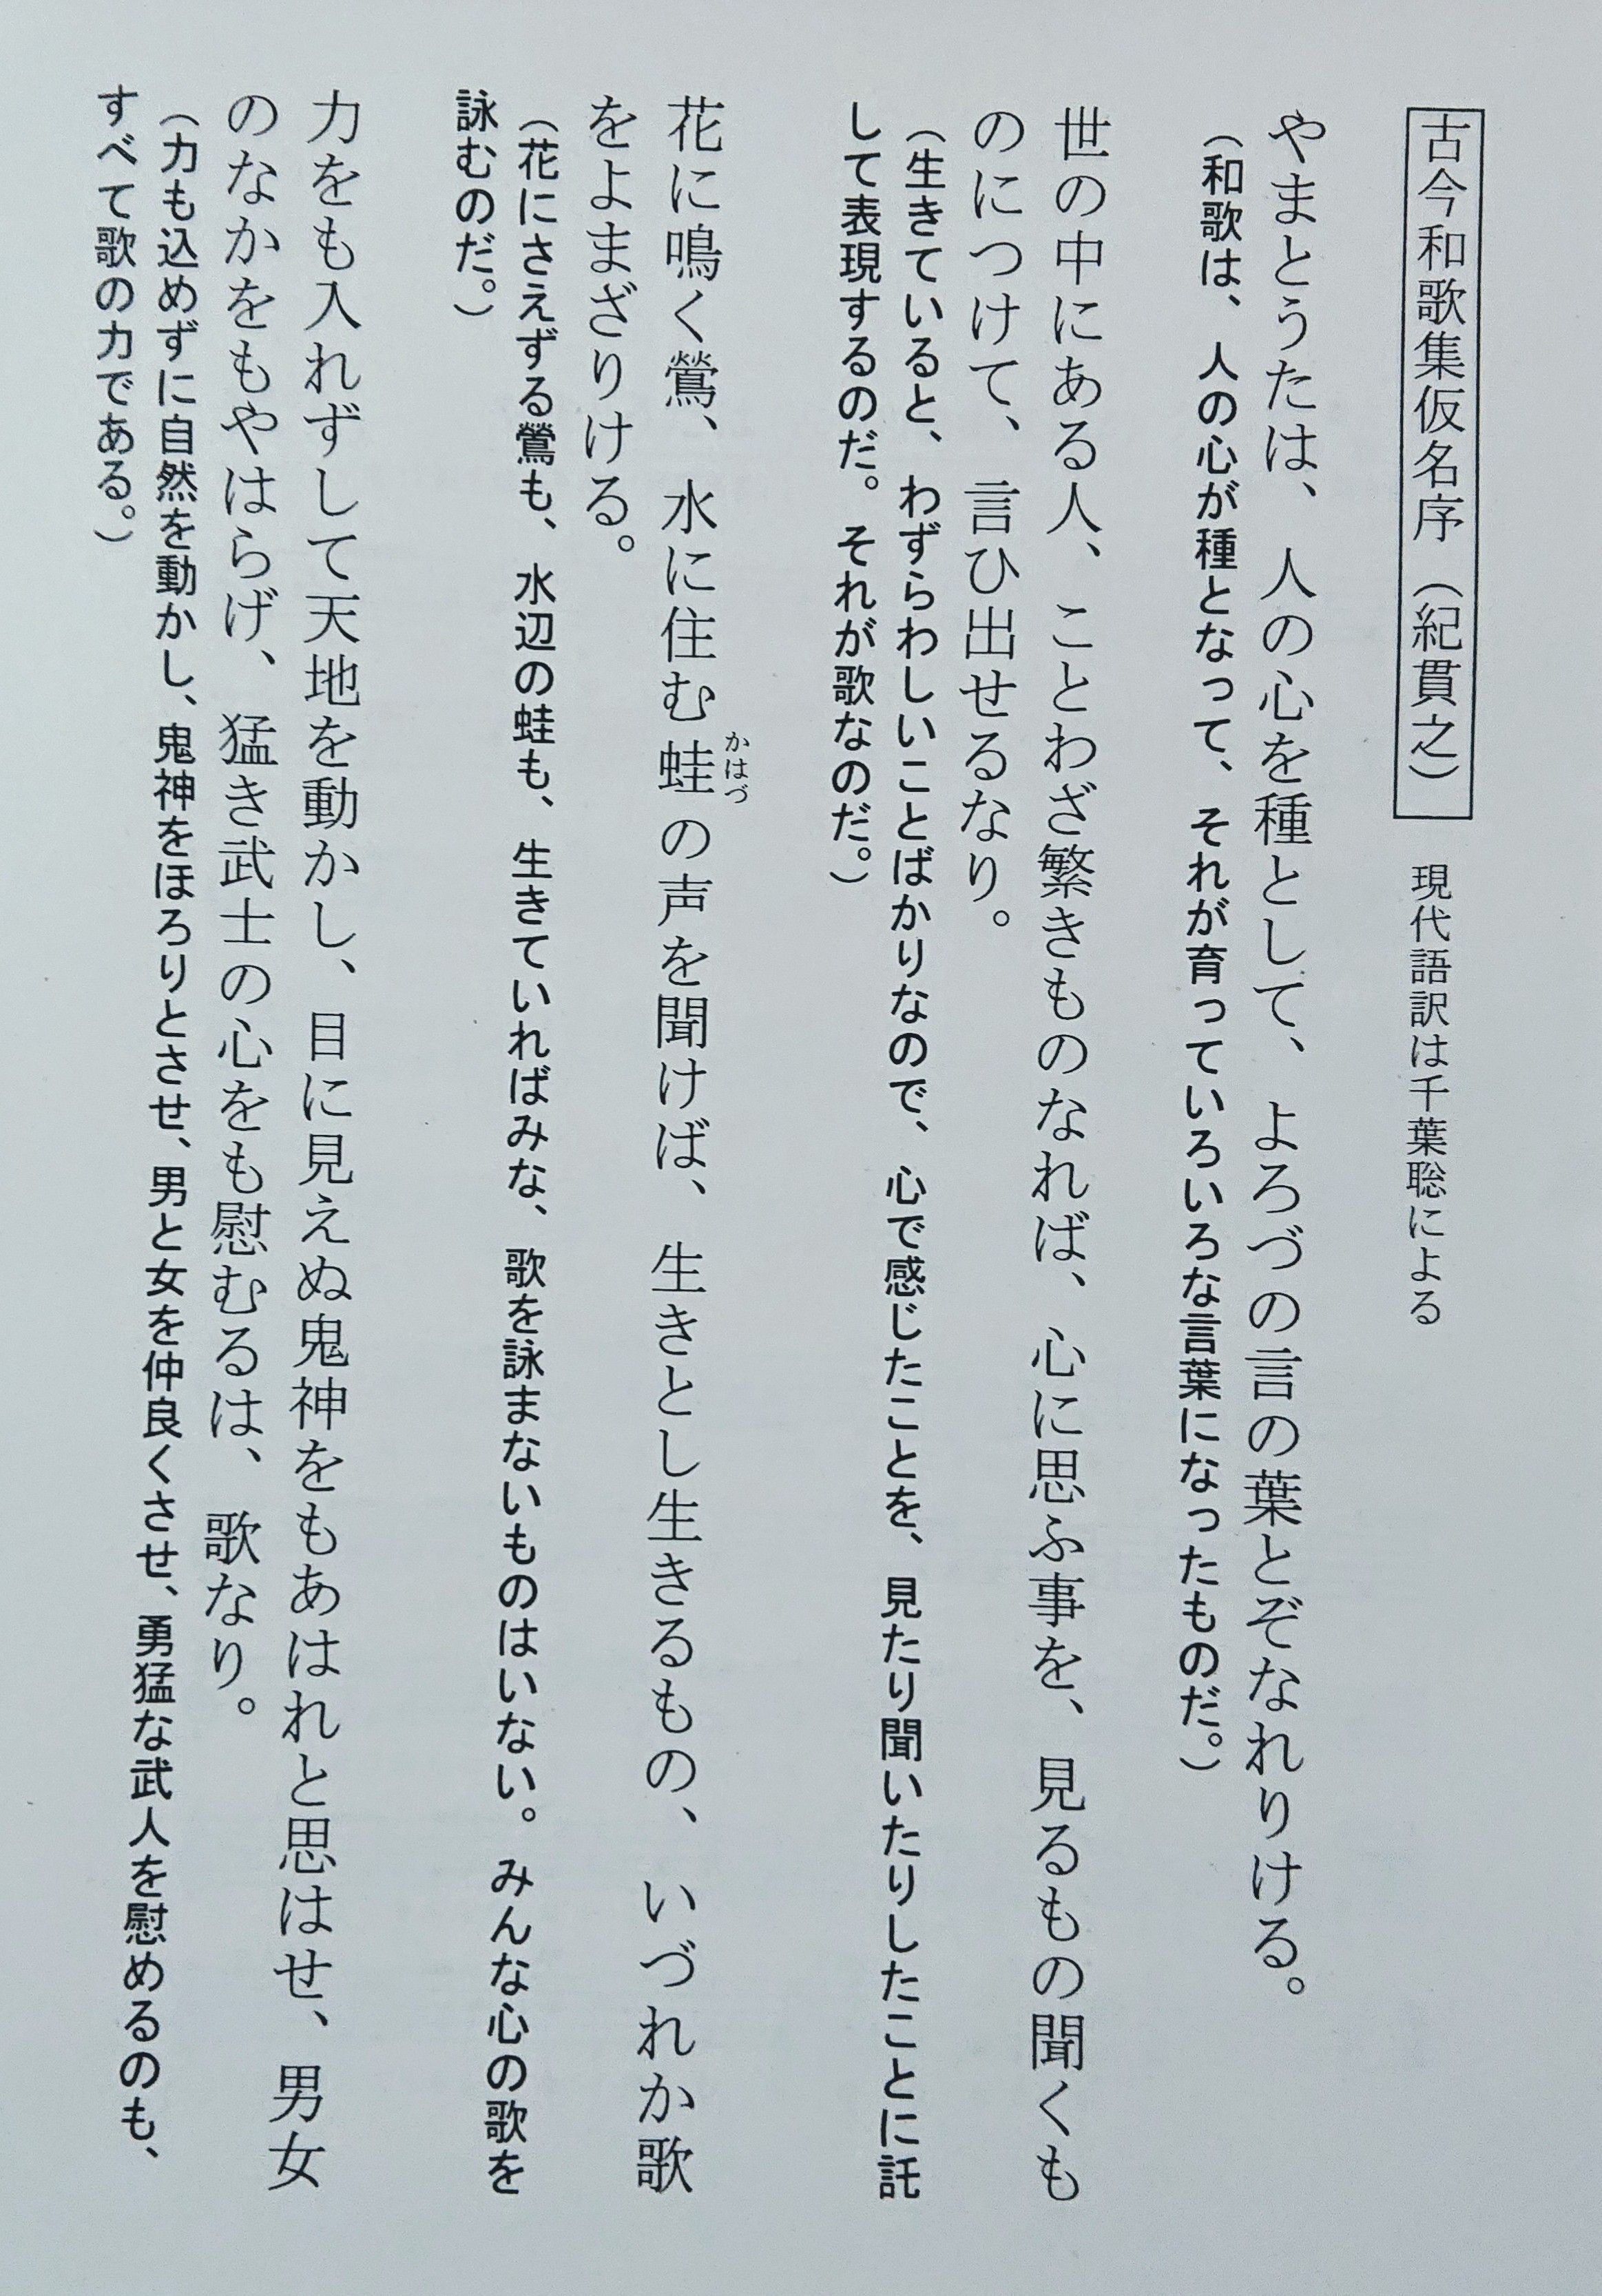 古今和歌集仮名序（紀貫之） 現代語訳は千葉聡による
やまとうたは、人の心を種として、よろづの言の葉とぞなれりける。
（和歌は、人の心が種となって、それが育っていろいろな言葉になったものだ。）
世の中にある人、ことわざ繁きものなれば、心に思ふ事を、見るもの聞くも
のにつけて、言ひ出せるなり。
（生きていると、わずらわしいことばかりなので、心で感じたことを、見たり聞いたりしたことに託
して表現するのだ。それが歌なのだ。）
花に鳴く鶯、水に住む蛙の声を聞けば、生きとし生きるもの、いづれか歌
かはづ
をよまざりける。
（花にさえずる鶯も、水辺の蛙も、生きていればみな、歌を詠まないものはいない。みんな心の歌を
詠むのだ。）
力をも入れずして天地を動かし、目に見えぬ鬼神をもあはれと思はせ、男女
のなかをもやはらげ、猛き武士の心をも慰むるは、歌なり。
（力も込めずに自然を動かし、鬼神をほろりとさせ、男と女を仲良くさせ、勇猛な武人を慰めるのも、
すべて歌の力である。）